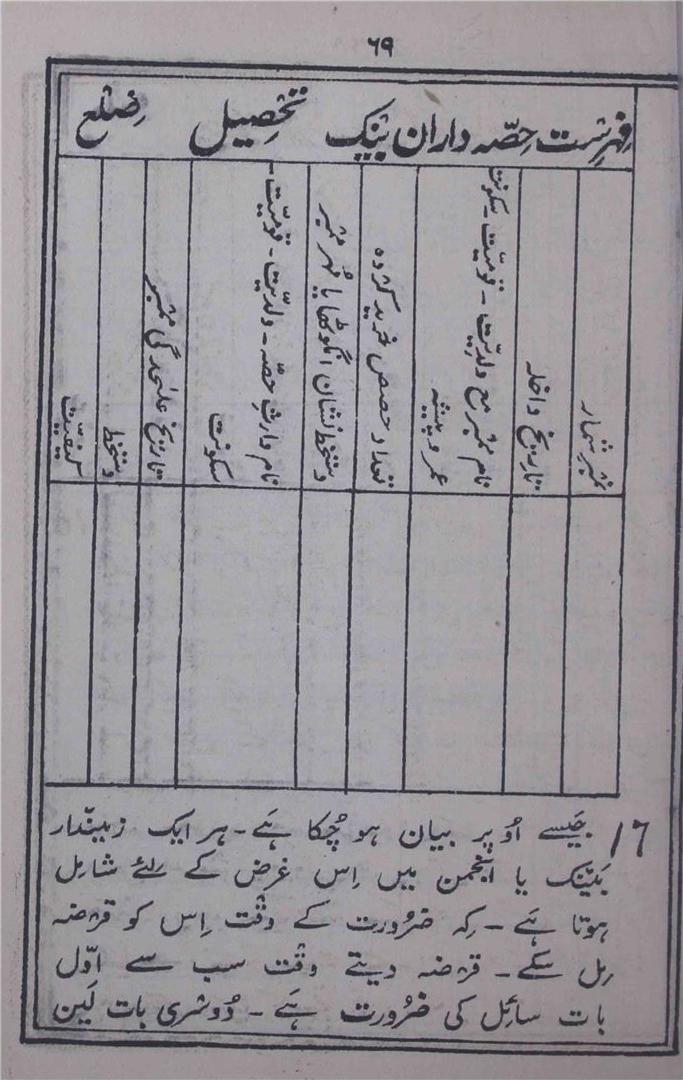 ٦٩
فِہرِست حِصّہ داران بَینک تحصِیل ضِلع
نمبر شمار
تاریخ داخلہ
نام ممبر مع ولدِیّت۔ قومِیّت۔ سکونت
عمر و پیشہ
تعداد حصص خرید کردہ
دستخط نشان انگوٹھا یا مُہر ممبر
نام وارثِ حصّہ۔ ولدیّت۔ قومیّت۔
سکونت
تاریخ علٰحدگی ممبر
دستخط
کیفیّت
١٦ جَیسے اُوپر بیان ہو چُکا ہَے۔ ہر ایک زمِیندار
بَینک یا انجمن میں اِس غرض کے لِئے شامِل
ہوتا ہَے۔ کِہ ضرُورت کے وقْت اِس کو قرضہ
مِل سکے۔ قرضہ دیتے وقْت سب سے اوّل
بات سائِل کی ضرُورت ہَے۔ دُوسْری بات لَین